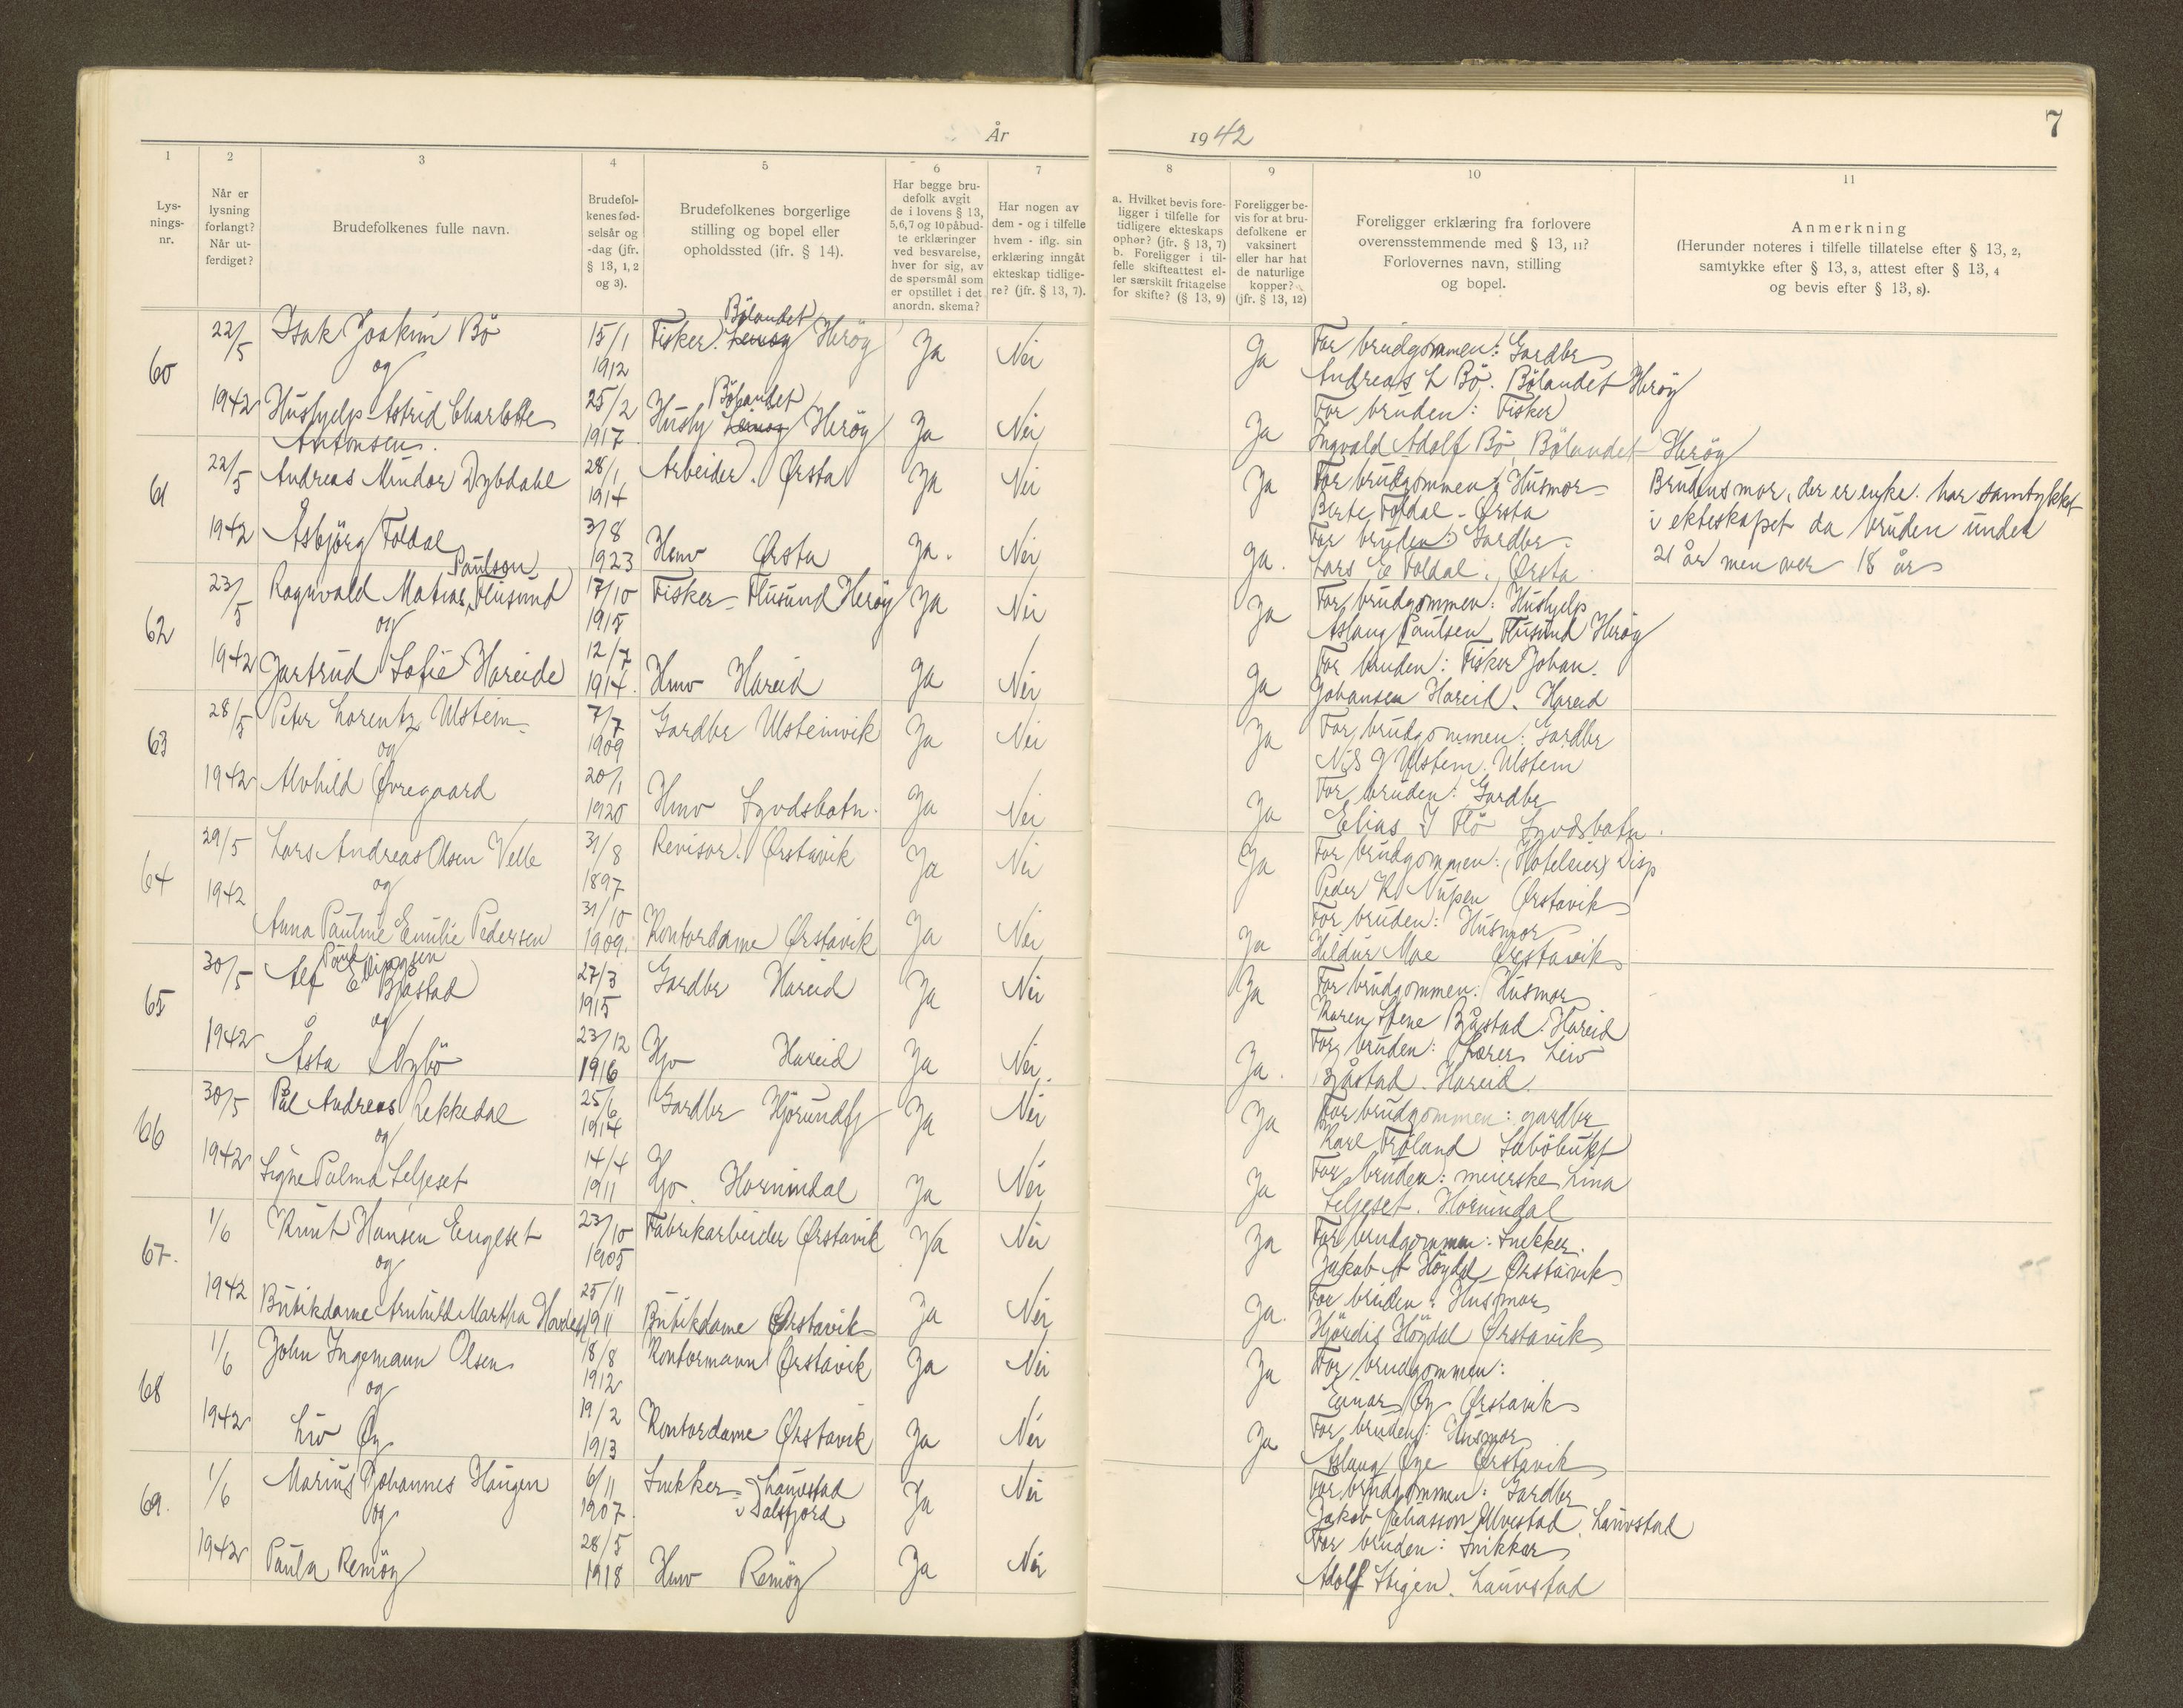 År
1942
7
1
Lys-
nings-
nr.
2
Når er
lysning
forlangt?
Når ut-
ferdiget?
3
Brudefolkenes fulle navn.
4
Brudefol-
kenes fød-
selsår og
-dag (jfr.
§ 13, 1, 2
og 3).
5
Brudefolkenes borgerlige
stilling og bopel eller
opholdssted (jfr. § 14).
6
Har begge bru-
defolk avgit
de i lovens § 13,
5, 6, 7 og 10 påbud-
te erklæringer
ved besvarelse,
hver for sig, av
de spørsmål som
er opstillet i det
anordn. skema?
7
Har nogen av
dem - og i tilfelle
hvem - iflg. sin
erklæring inngåt
ekteskap tidlige-
re? (jfr. § 13, 7).
8
a. Hvilket bevis fore-
ligger i tilfelle for
tidligere ekteskaps
ophør? (jfr. § 13, 7)
b. Foreligger i til-
felle skifteattest el-
ler særskilt fritagelse
for skifte? (§ 13, 9)
9
Foreligger be-
vis for at bru-
defolkene er
vaksinert
eller har hat
de naturlige
kopper?
(jfr. § 13, 12)
10
Foreligger erklæring fra forlovere
overensstemmende med § 13, 11?
Forlovernes navn, stilling
og bopel.
11
Anmerkning
(Herunder noteres i tilfelle tillatelse efter § 13, 2,
samtykke efter § 13, 3, attest efter § 13, 4
og bevis efter § 13, 8).
60
22/5 1942
Isak Joakim Bö
15/1 1912
Bölandet
Fisker. Heröy
Ja Nei
Ja
For brudgommen: Gardbr
Andreas L Bö. Bölandet Heröy
og
Hushjelp Astrid Charlotte
Antonsen.
25/2 1917
Bölandet
Hushj Heröy
Ja Nei
Ja
For bruden: Fisker
Ingvald Adolf Bö, Bölandet Heröy
61
22/5 1942
Andreas Mindor Dybdahl
28/1 1914
Arbeider. Ørsta
Ja Nei
Ja
For brudgommen: Husmor
Berte Foldal - Ørsta
Brudens mor, der er enke. har samtykket
i ekteskapet da bruden under
21 år men over 18 år
Asbjörg Foldal
3/8 1923
Hmv Ørsta
Ja. Nei
Ja.
For bruden: Gardbr.
Lars E Foldal. Ørsta
62
23/5 1942
Paulsen
Ragnvald Matias Flusund
17/10 1915
Fisker - Flusund Heröy
Ja Nei
Ja
For brudgommen: Hushjelp
Aslaug Paulsen Flusund Heröy
og
Jartrud Sofie Hareide
12/7 1914.
Hmv Hareid
Ja Nei
Ja
For bruden: Fisker Johan.
Johansen Hareid. Hareid
63
28/5 1942
Peter Lorentz Ulstein
7/7 1909
Gardbr Ulsteinvik
Ja Nei
Ja
For brudgommen: Gardbr
Nils J Ulstein. Ulstein
og
Alvhild Øvregaard
20/1 1920
Hmv Syvdsbotn.
Ja Nei
Ja
For bruden: Gardbr
Elias I Flö Syvdsbotn.
64
29/5 1942
Lars Andreas Olsen Velle
31/8 1897
Revisor. Ørstavik
Ja Nei
Ja
For brudgommen: (Hoteleier) Disp
Peder K Nupen Ørstavik
og
Anna Pauline Emilie Pedersen
31/10 1909.
Kontordame Ørstavik
Ja Nei
Ja
For bruden: Husmor
Hildur Moe Ørstavik
65
30/5 1942
Alf E Bjåstad
27/3 1915
Gardbr Hareid
Ja Nei
Ja
For brudgommen: Husmor
Karen Stene Bjåstad. Hareid
og
Åsta Nybö
23/12 1916
Hjv Hareid
Ja Nei.
Ja.
For bruden: Lærer Leiv
Bjåstad. Hareid.
66
30/5 1942
Pål Andreas Rekkedal
25/6 1914
Gardbr Hjörundfj
Ja Nei
Ja
For brudgommen: gardbr
Karl Tröland Sæböbukt
og
Signe Palma Seljeset
14/4 1911
Hjv. Hornindal
Ja Nei
Ja
For bruden: meierske Lina
Seljeset. Hornindal
67.
1/6 1942
Knut Hansen Engeset
23/10 1905
Fabrikarbeider Ørstavik
Ja Nei
Ja
For brudgommen: Snekker.
Jakob A Höydal Ørstavik
og
Butikdame Arnhild Martha Hovden
25/11 1911
Butikdame Ørstavik
Ja Nei
Ja.
For bruden: Husmor
Hjördis Höydal Ørstavik
68
1/6 1942
John Ingemann Olsen
18/8 1912
Kontormann Ørstavik
Ja Nei
Ja
For brudgommen:
Einar Øy Ørstavik
og
Liv Øy
19/2 1913
Kontordame Ørstavik
Ja Nei
Ja
For bruden: Husmor
Aslaug Øye Ørstavik
69.
1/6 1942
Marius Johannes Haugen
6/11 1907.
Snekker - Lauvstad
i Dalsfjord
Ja Nei
For brudgommen: Gardbr
Jakob Eliasson Ulvestad. Lauvstad
og
Paula Remöy
28/5 1918
Hmv Remöy
Ja Nei
For bruden: Snikkar
Adolf Stigen. Lauvstad